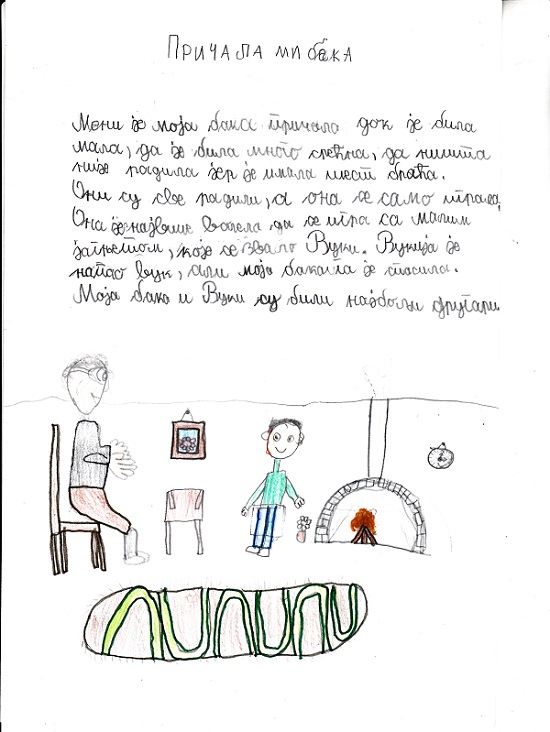 Причала ми бака
Мени је моја бака причала док је била
мала, да је била много срећна, да ништа
није радила јер је имала шест браћа.
Они су све радили, а она се само играла.
Она је највише волела да се игра са малим
јагњетом, које се звало Вуки. Вукија је
напао вук, али моја бака га је спасила.
Моја бака и Вуки су били најбољи другари.